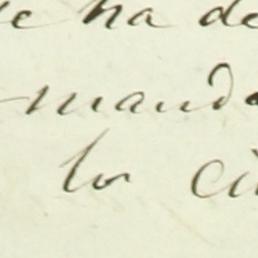 ue ha de
manda
los ci